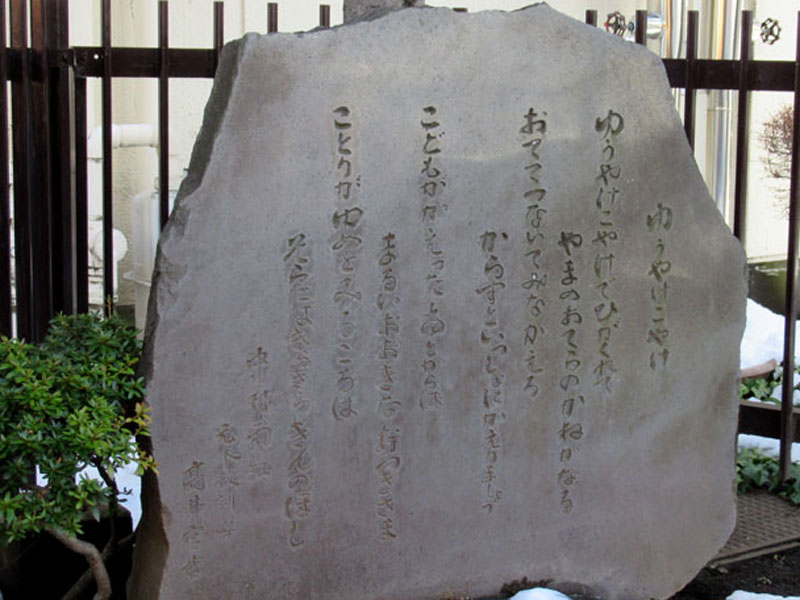 ゆうやけこやけ
ゆうやけこやけでひがくれて
やまのおてらのかねがなる
おててつないでみなかえろ
からすといっしょにかえりましょう
こどもがかえったあとからは
まるいおおきなおつきさま
ことりがゆめをみるころは
そらにはきらきらきんのほし
中村雨紅